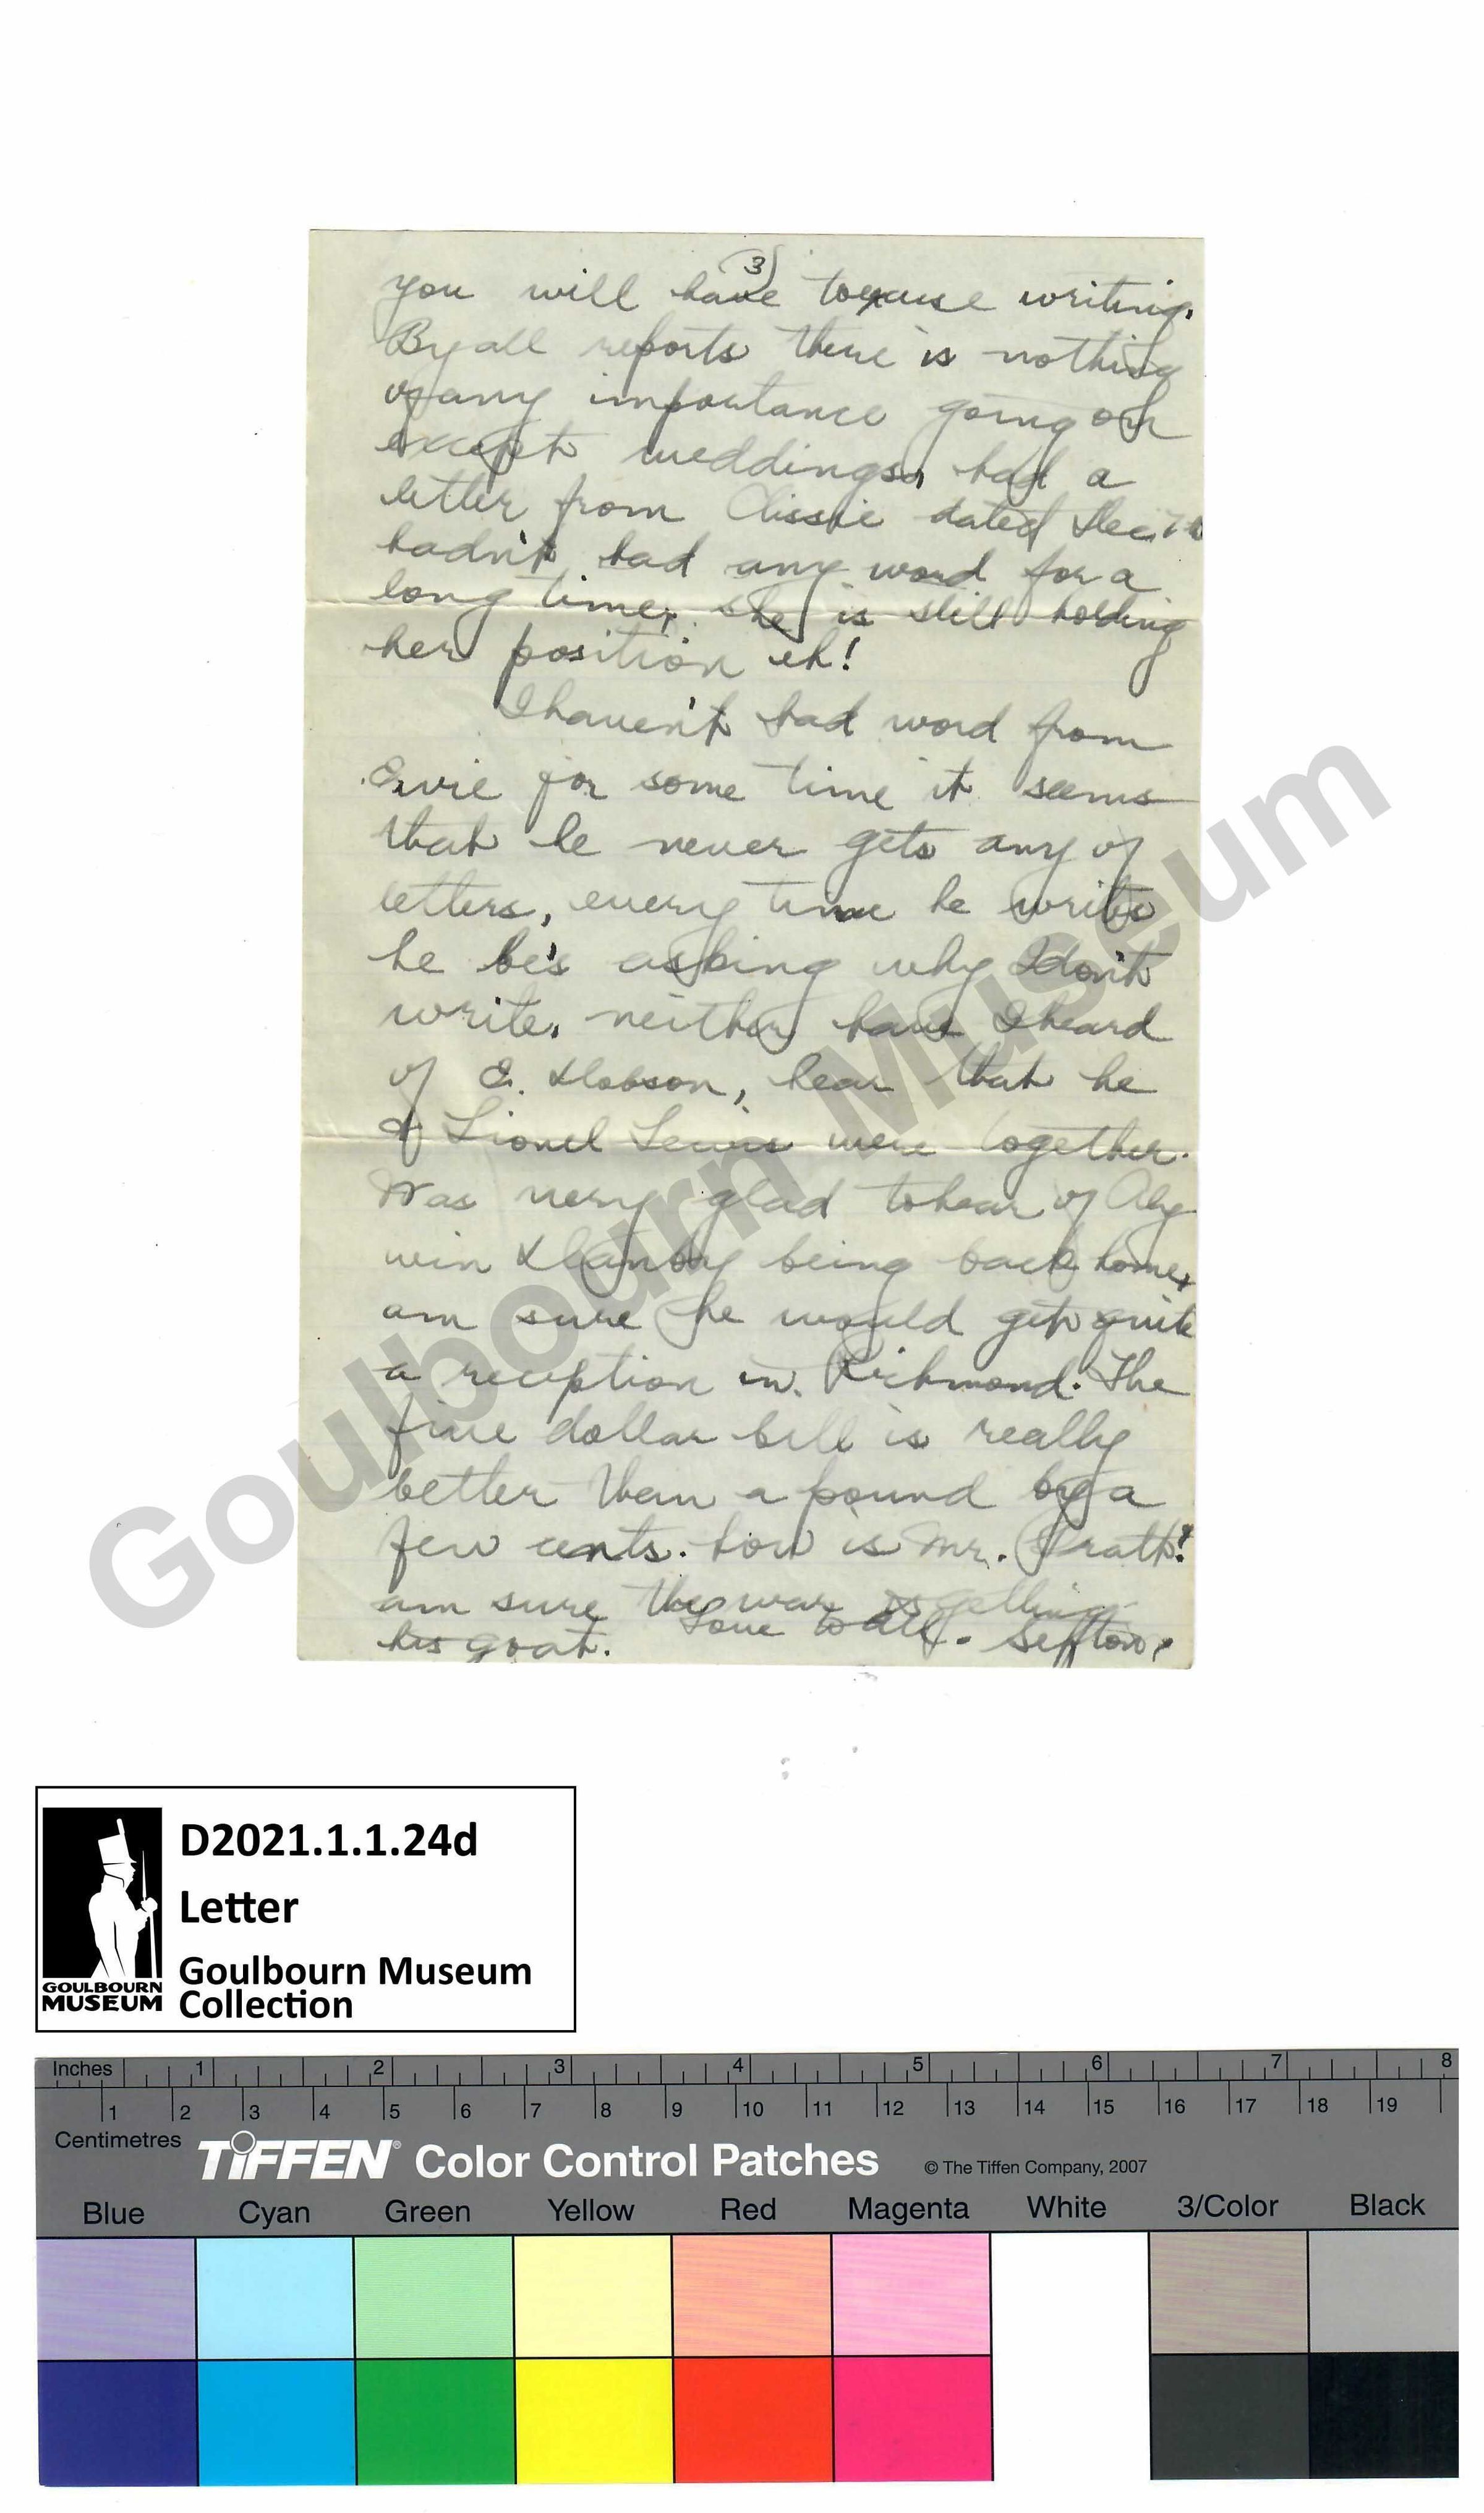 3
you will have to excuse writing.
By all reports there is nothing
of any importance going on
except weddings, had a
letter from Clissie dated Dec
hadn't had any word for a
long time, she is still holding
her position eh!
I haven't had word from
Ervie for some time it seems
that he never gets any of
letters, every time he writes
he be's asking why I don't
write, neither have I heard
of E. Hobson, hear that he
& Lionel Lewis were together.
Was very glad to hear of
being back home,
am sure he would get quite
a reception in Richmond. The
five dollar bill is really
better than a pound by a
few cents. how is Mr.
am sure the war is getting
his goat. Love to all. Sefton.
Goulbourn Museum
D2021.1.1.24d
Letter
Goulbourn Museum
Collection
GOULBOURN
MUSEUM
Inches 1 2 3 4 5 6 7 8
1 2 3 4 5 6 7 8 9 10 11 12 13 14 15 16 17 18 19
Centimetres
TIFFEN® Color Control Patches © The Tiffen Company, 2007
Blue Cyan Green Yellow Red Magenta White 3/Color Black